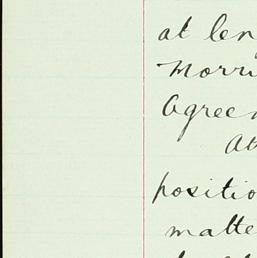 at len
Morri
Agree
At
positio
matte